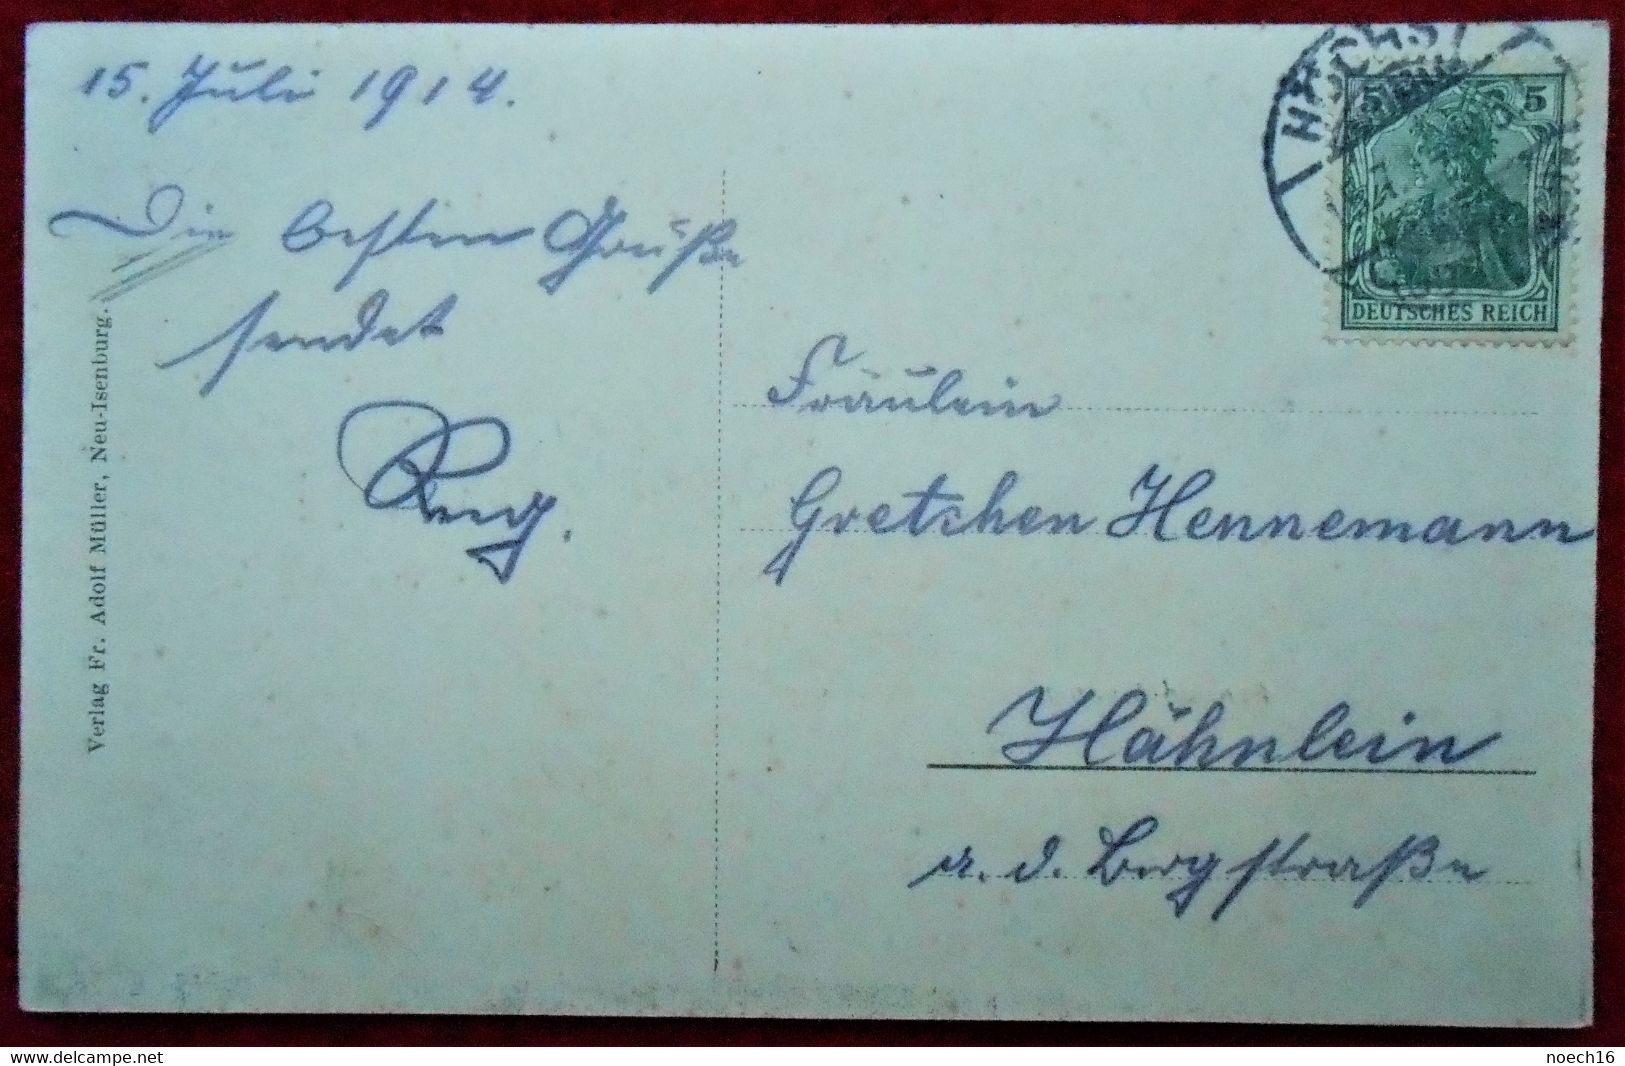 15. Juli 1914.
Die besten Grüße
sendet
Fräulein
Gretchen Hennemann
Hähnlein
a. d. Bergstraße
Verlag Fr. Adolf Müller, Neu-Isenburg.
HÖCHST
5 5
DEUTSCHES REICH
noech16